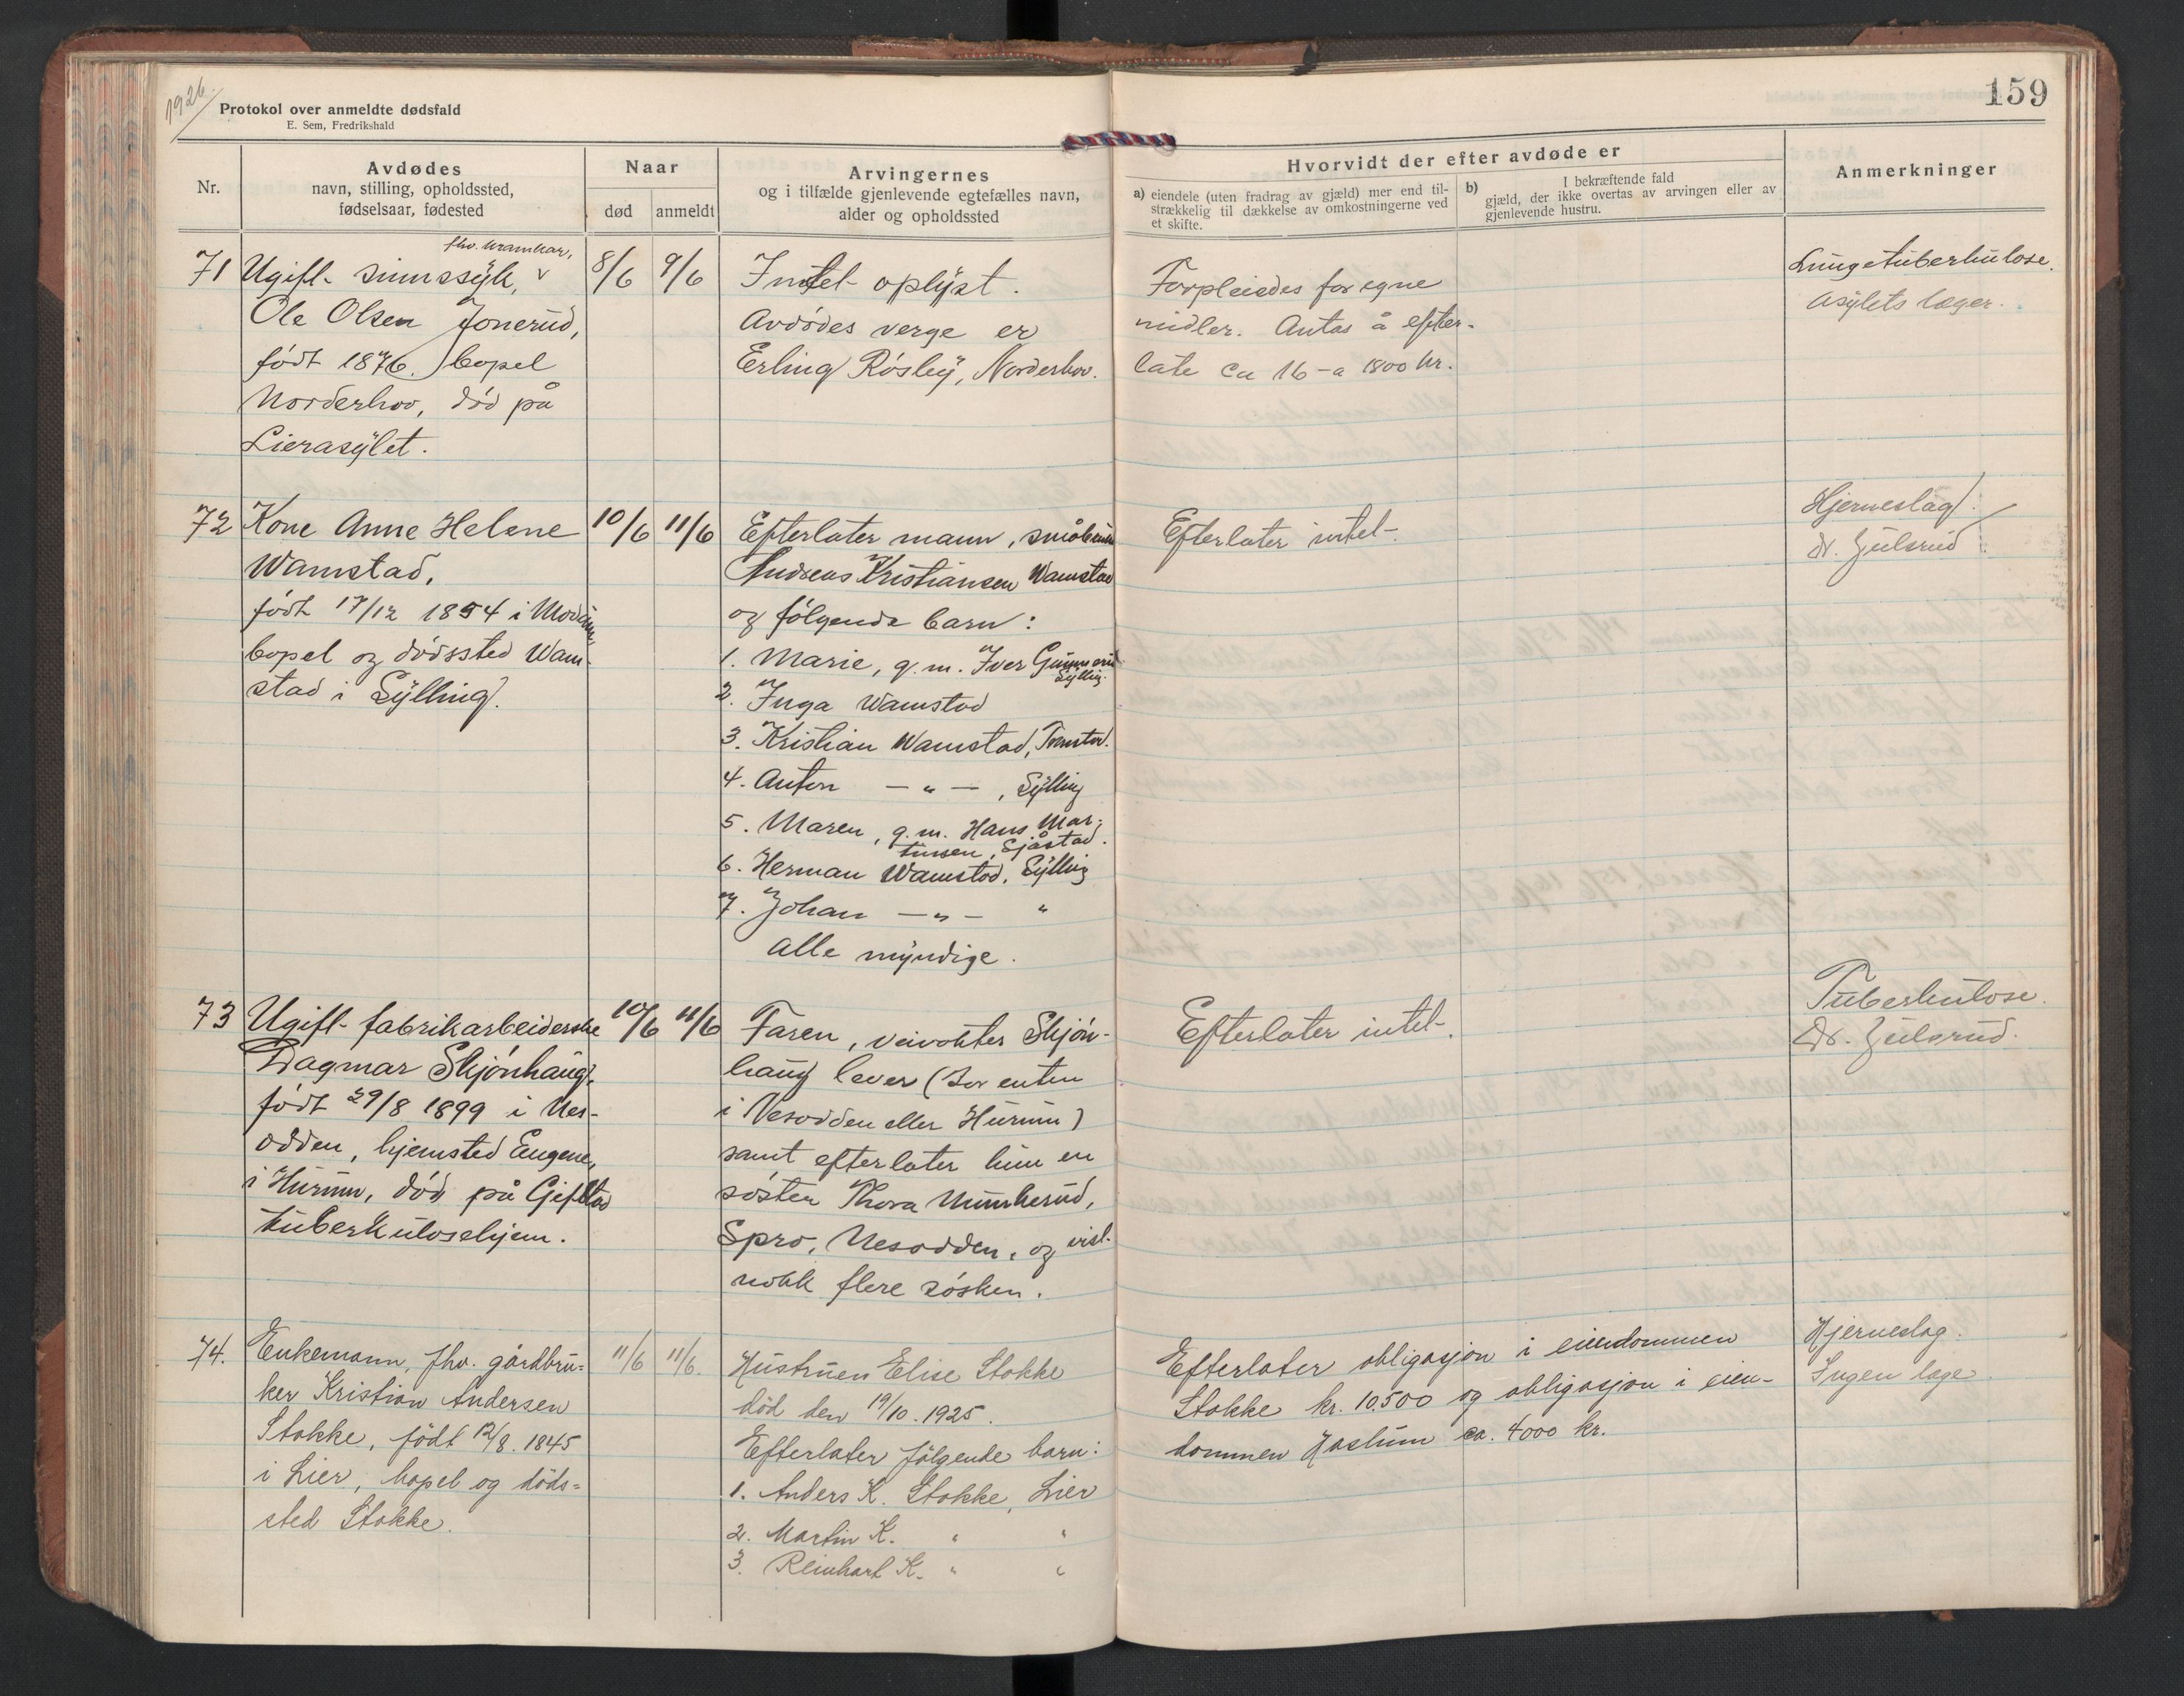 1926.
159
Protokol over anmeldte dødsfald
E. Sem, Fredrikshald
Nr.
Avdødes
navn, stilling, opholdssted,
fødselsaar, fødested
Naar
død
anmeldt
Arvingernes
og i tilfælde gjenlevende egtefælles navn,
alder og opholdssted
Hvorvidt der efter avdøde er
a) eiendele (uten fradrag av gjæld) mer end til-
strækkelig til dækkelse av omkostningerne ved
et skifte.
b) I bekræftende fald
gjæld, der ikke overtas av arvingen eller av
gjenlevende hustru.
Anmerkninger
71
fhv.
Ugift sinnssyk, v
Ole Olsen Jonerud,
født 1876. bopel
Norderhov, død på
Lierasylet.
8/6
9/6
Intet oplyst.
Avdødes verge er
Erling Røsby, Norderhov.
Forpleiedes for egne
midler. Antas å efter-
late ca 16 - a 1800 kr.
Lungetuberkulose.
Asylets læger.
72
Kone Anne Helene
Wamstad,
født 17/12 1854 i Modum,
bopel og dødssted Wam-
stad i Sylling.
10/6
11/6
Efterlater mann, småbruker
Andreas Kristiansen Wamstad
og følgende barn:
1. Marie, g. m. Iver Gunnerud
Sylling.
2. Inga Wamstad
3. Kristian Wamstad, Tranby.
4. Anton — " — , Sylling
5. Maren, g. m. Hans Mar-
tinsen, Sjåstad.
6. Herman Wamstad, Sylling
7. Johan — " — "
alle myndige.
Efterlater intet.
Hjerneslag.
dr. Zeilsrud
73
Ugift fabrikarbeiderske
Dagmar Skjønhaug,
født 29/8 1899 i Nes-
odden, hjemsted Engene,
i Hurum, død på Gifstad
tuberkulosehjem.
10/6
11/6
Faren, veivokter Skjøn-
haug lever (bor enten
i Nesodden eller Hurum)
samt efterlater hun en
søster Thora Munkerud,
Spro, Nesodden, og vist-
nokk flere søsken.
Efterlater intet.
Tuberkulose.
Dr. Zeilsrud.
74.
Enkemann, fhv. gårdbru-
ker Kristian Andersen
Stokke, født 12/8. 1845
i Lier, bopel og døds-
sted Stokke.
11/6
11/6.
Hustruen Elise Stokke
død den 19/10. 1925.
Efterlater følgende barn:
1. Anders K. Stokke, Lier
2. Martin K. " "
3. Reinhart K. " "
Efterlater obligasjon i eiendommen
Stokke kr. 10.500 og obligasjon i eien-
dommen Haslum ca. 4000 kr.
Hjerneslag.
Ingen læge